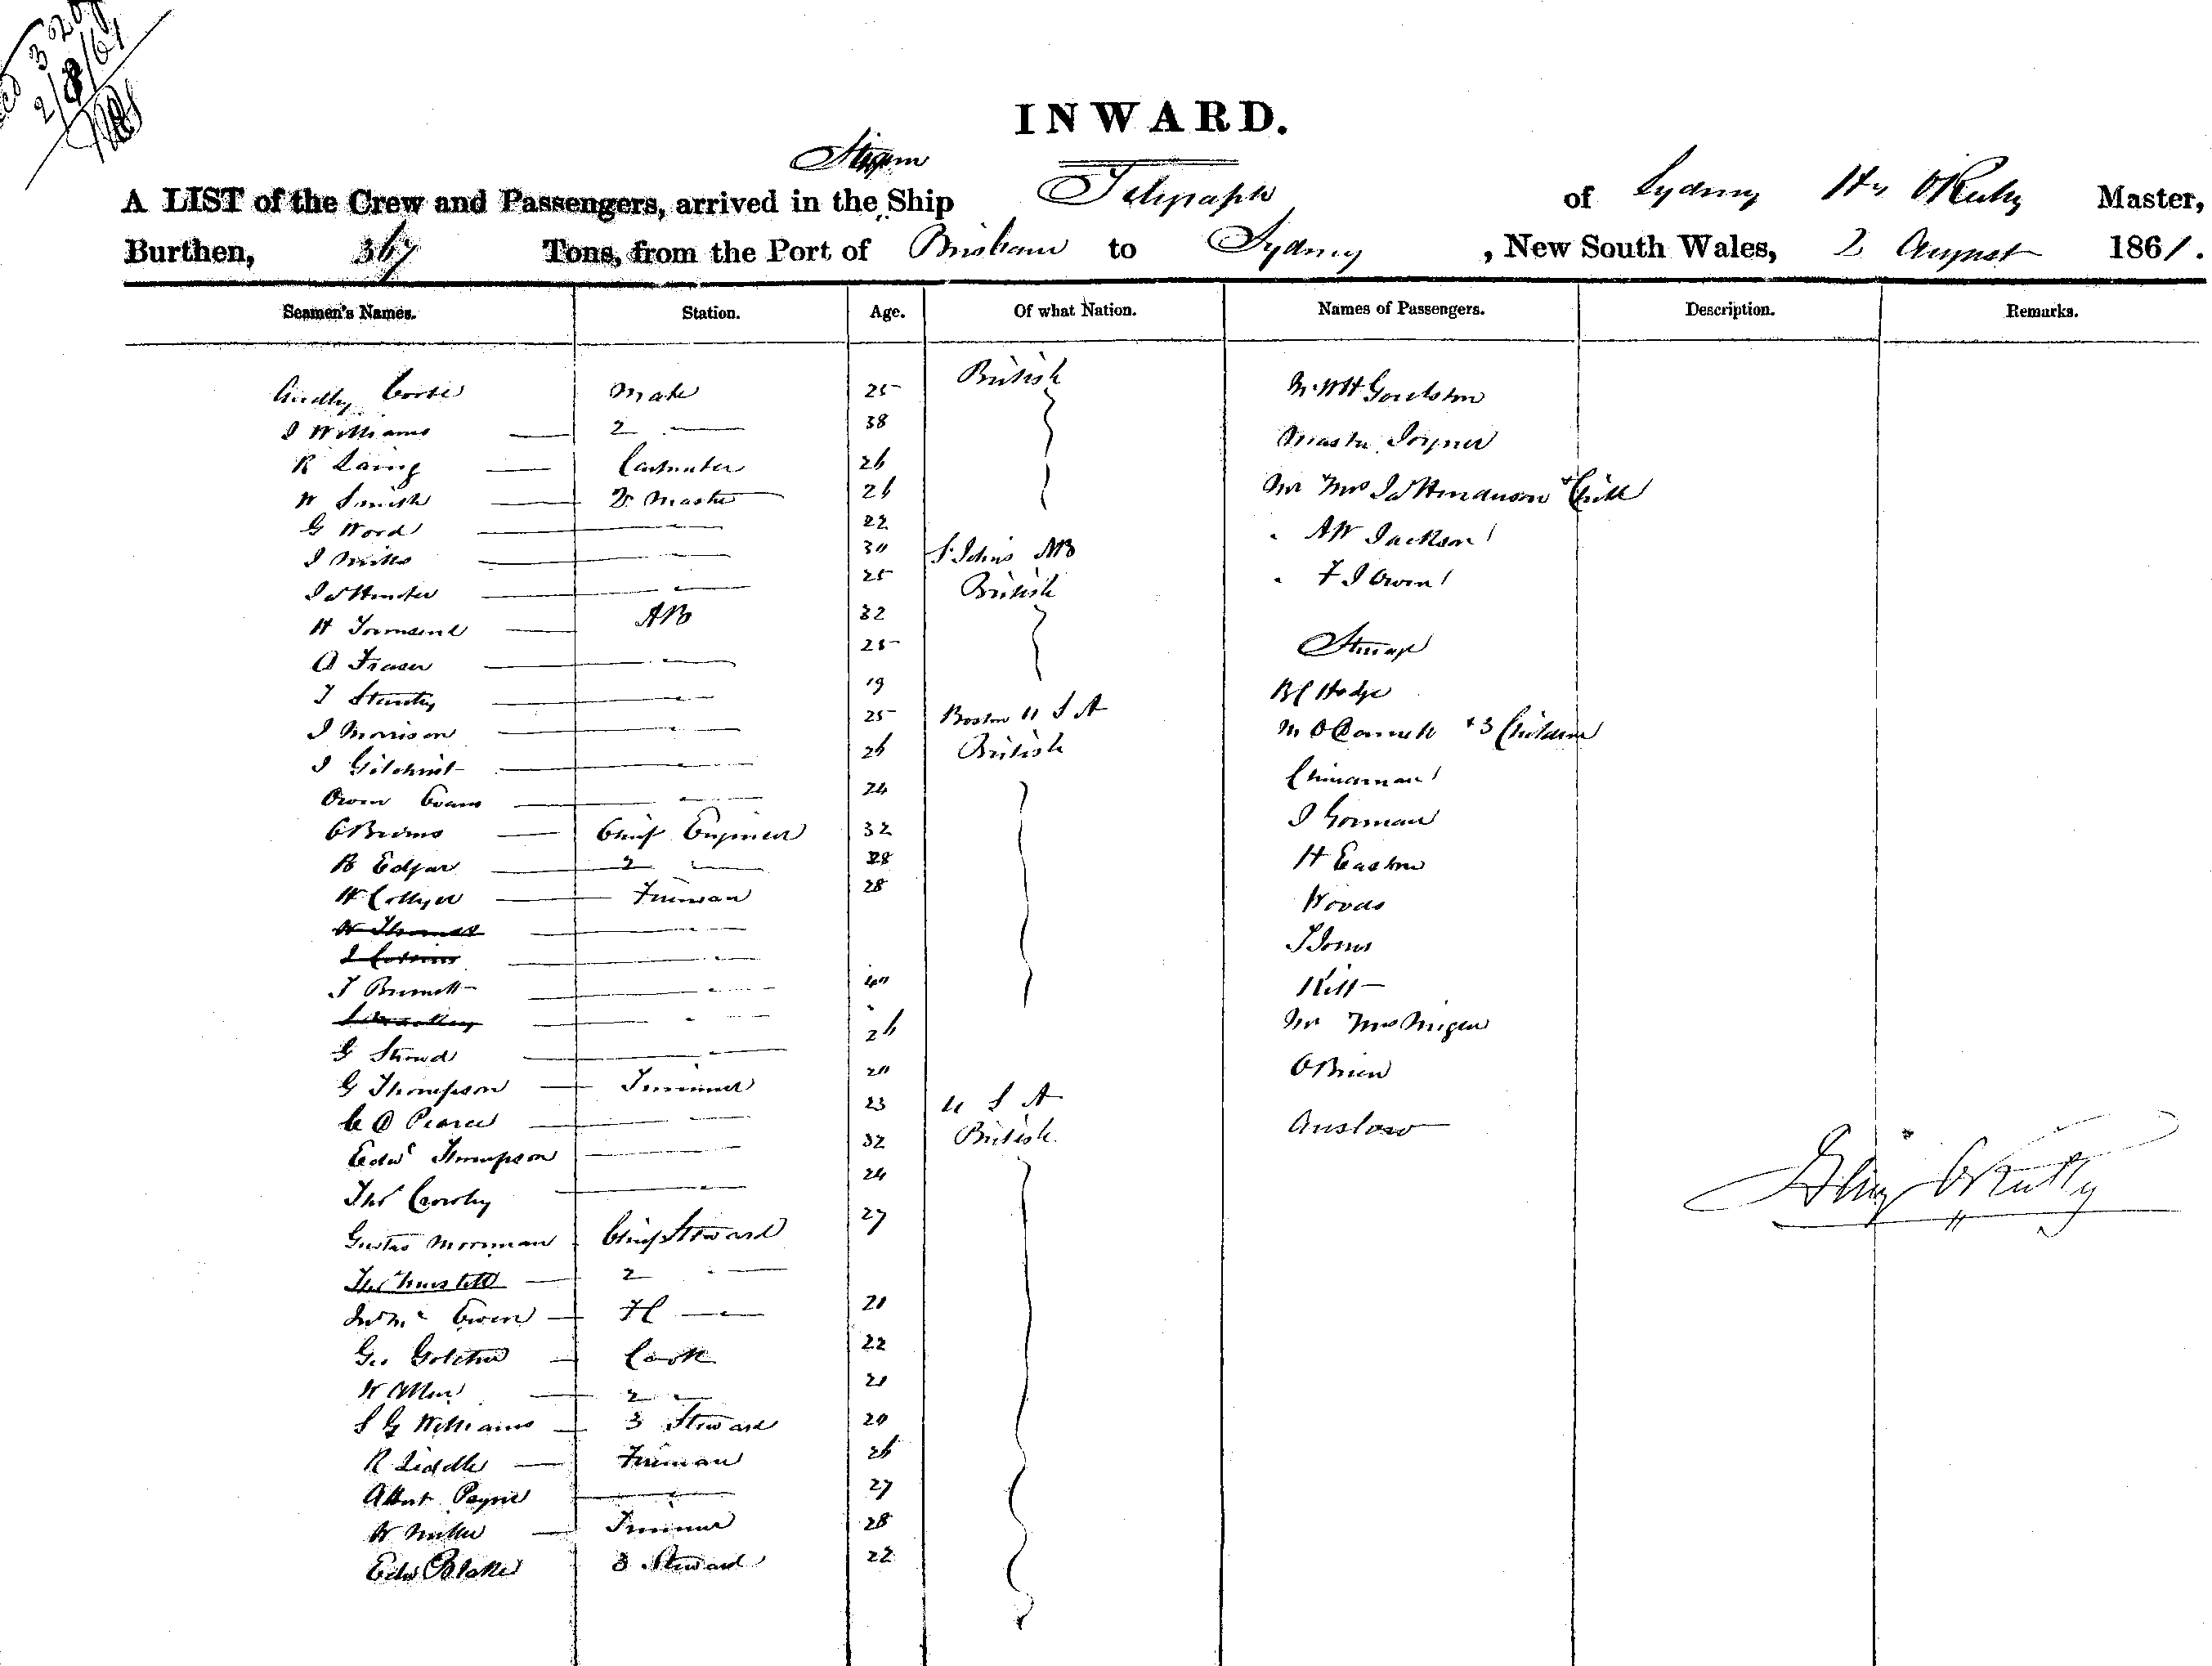 320
2/8/61
INWARD.
Steam
A LIST of the Crew and Passengers, arrived in the Ship Telegraph of Sydney Hy O'Reilly Master,
Burthen, 367 Tons, from the Port of Brisbane to Sydney, New South Wales, 2 August 1861.
Seamen's Names. Station. Age. Of what Nation. Names of Passengers. Description. Remarks.
Audley Coote Mate 25 British Mr WH Goulston
J Williams — 2 — 38 Master Joyner
R Laing — Carpenter 26 Mr Mrs Jas Henderson + Child
W Smith — Qr Master 26
G Wood — 22 " AW Jackson
J Mills — 30 St Johns NB
Jas Hunter — 25 British " F J Owen
H Townsend — AB 32
A Fraser — 25 Steerage
T Stanley — 19 BC Hodge
J Morrison — 25 Boston U S A M O Connell + 3 Children
J Gilchrist — 26 British
Owen Evans — 24 Chinaman
— Chief Engineer 32 J Gorman
B Edgar — 2 — 28 H Easton
W Collyer — Fireman 28 Woods
W Thomas —
J Collins — T Jones
T Burnett — 40 Kitt
S Mackey — Mr Mrs
G Stroud — 26
G Thompson — Trimmer 20 O Brien
C A Pearce — 23 U S A Anslow
Edwd Thompson — 32 British
Thos Crowley — 24 Hy O'Reilly
Gustas Morriman Chief Steward 27
Thos — 2 —
Jno Mc Ewen — F C — 21
Geo Golcher — Cook 22
W Allen — 2 — 21
S G Williams — 3 Steward 20
R Liddle — Fireman 26
Albert Payne — 27
W Miller — Trimmer 28
Edw Blake 3 Steward 22